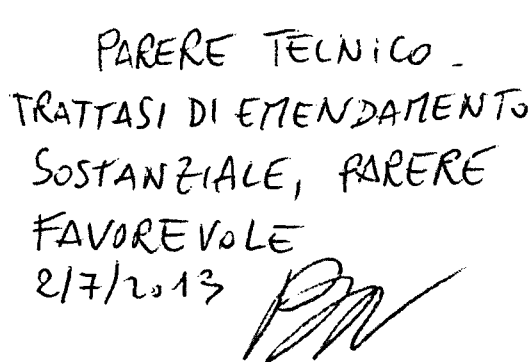 PARERE TECNICO -
TRATTASI DI EMENDAMENTO
SOSTANZIALE, PARERE
FAVOREVOLE
2/7/2013